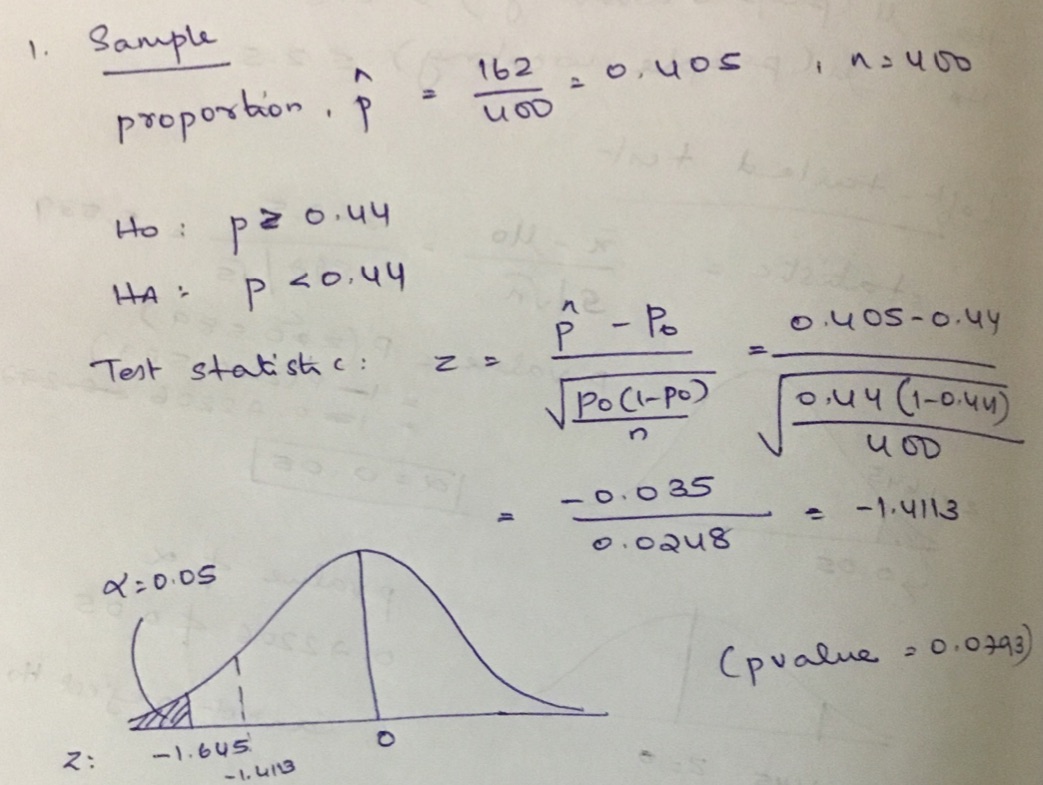 1. Sample
proportion, p̂ = 162/400 = 0.405, n = 400
H0: p ≥ 0.44
HA: p < 0.44
Test statistic: z = (p̂ - p0)/√(p0(1-p0)/n) = (0.405-0.44)/√(0.44(1-0.44)/400)
= -0.035/0.0248 = -1.4113
α = 0.05
(pvalue = 0.0793)
z: -1.645 0
-1.4113